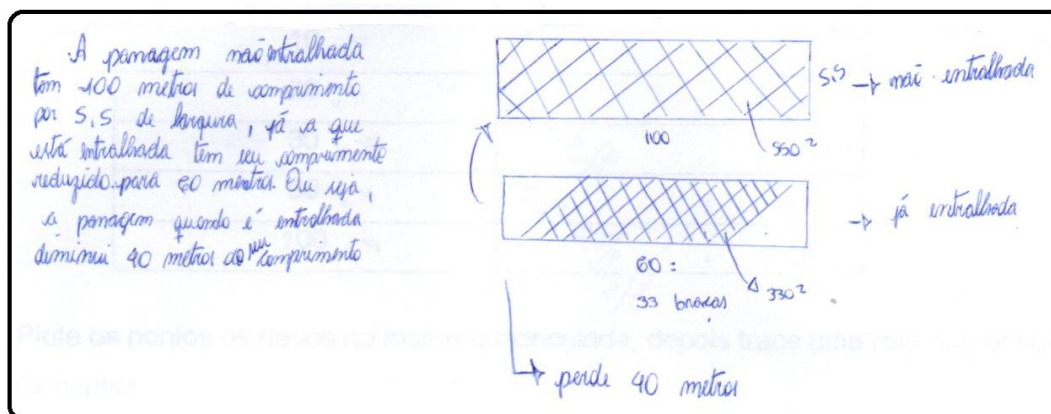 A panagem não entralhada
tem 100 metros de comprimento
por 5,5 de largura, já a que
está entralhada tem seu comprimento
reduzido para 60 metros. Ou seja,
a panagem quando é entralhada
deminui 40 metros ao seu comprimento
5,5 → não entralhada
100
550²
→ já entralhada
60 :
33 braças
330²
→ perde 40 metros
100